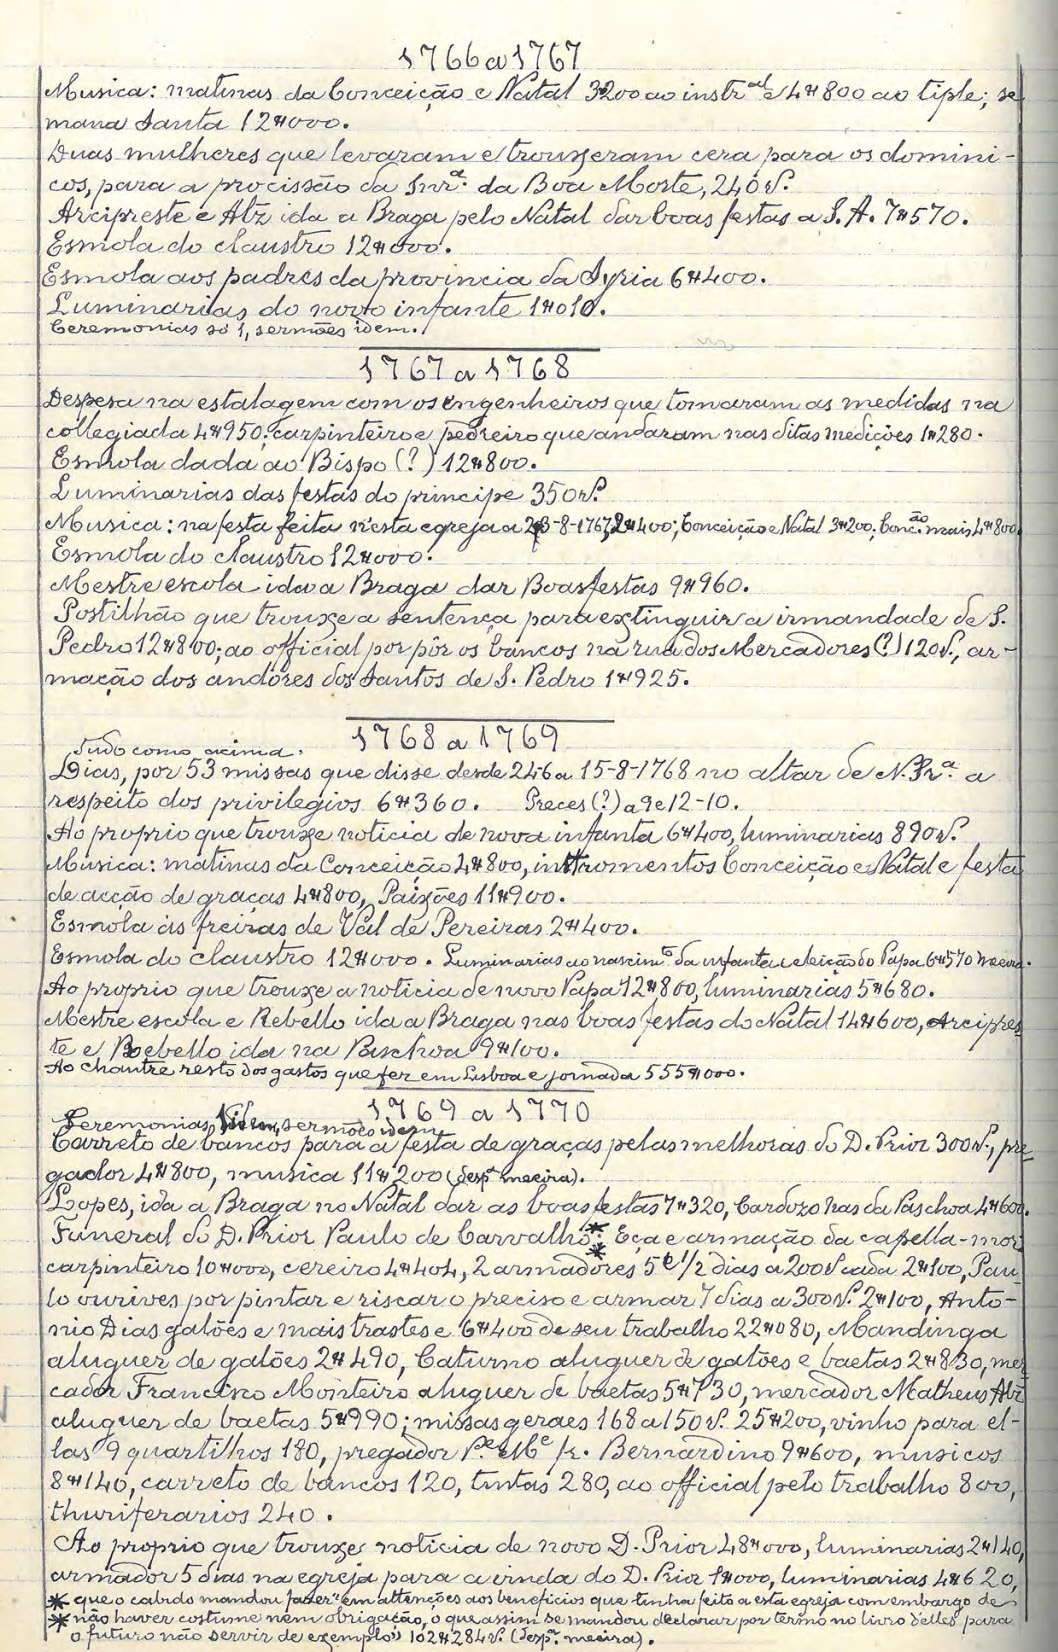 1766 a 1767
Musica: matinas da Conceição e Natal 3200 ao instr.al e 4#800 ao tiple; se
mana Santa 12#000.
Duas mulheres que levaram e trouxeram cera para os domini-
cos, para a procissão da Snr.a da Boa Morte, 240 rs.
Arcipreste e Abz ida a Braga pelo Natal dar boas festas a S. A. 7#570.
Esmola do claustro 12#000.
Esmola aos padres da provincia da Syria 6#400.
Luminarias do novo infante 1#010.
Ceremonias só 1, sermões idem.
1767 a 1768
Despesa na estalagem com os engenheiros que tomaram as medidas na
collegiada 4#950; carpinteiro e pedreiro que andaram nas ditas medições 1#280.
Esmola dada ao Bispo (?) 12#800.
Luminarias das festas do principe 350 rs.
Musica: na festa feita n'esta egreja a 23-8-1767, 2#400; Conceição e Natal 3#200; Conc.ão mais 4#800.
Esmola do claustro 12#000.
Mestre escola ida a Braga dar Boas festas 9#960.
Postilhão que trouxe a sentença para extinguir a irmandade de S.
Pedro 12#800; ao official por pôr os bancos na rua dos Mercadores (?) 120 rs., ar-
mação dos andores dos Santos de S. Pedro 1#925.
1768 a 1769
Tudo como acima.
Dias, por 53 missas que disse desde 24-6 a 15-8-1768 no altar de N. Sr.a a
respeito dos privilegios 6#360. Preces (?) a 9 e 12-10.
Ao proprio que trouxe noticia de nova infanta 6#400, luminarias 890 rs.
Musica: matinas da Conceição 4#800, instromentos Conceição e Natal e festa
de acção de graças 4#800, Paixões 11#900.
Esmola ás freiras de Val de Pereiras 2#400.
Esmola do claustro 12#000. Luminarias ao nascim.o da infanta e eleição do Papa 6#570 meeira.
Ao proprio que trouxe a noticia de novo Papa 12#800, luminarias 5#680.
Mestre escola e Rebello ida a Braga nas boas festas do Natal 14#600, Arcipres
te e Rebello ida na Paschoa 9#100.
Ao chantre resto dos gastos que fez em Lisboa e jornada 555#000.
1769 a 1770
Ceremonias idem, sermões idem
Carreto de bancos para a festa de graças pelas melhoras do D. Prior 300 rs., pre-
gador 4#800, musica 11#200 (desp.a meeira).
Lopes, ida a Braga no Natal dar as boas festas 7#320, Cardozo nas da Paschoa 4#600.
Funeral do D. Prior Paulo de Carvalho *: Eça e armação da capella-mor
* carpinteiro 10#000, cereiro 4#404, 2 armadores 5 e 1/2 dias a 200 rs cada 2#100, Pau
lo ourives por pintar e riscar o preciso e armar 7 dias a 300 rs. 2#100, Anto-
nio Dias galões e mais trastes e 6#400 de seu trabalho 22#080, Mandinga
aluguer de galões 2#490, Caturno aluguer de galões e baetas 2#830, mer
cador Francisco Monteiro aluguer de baetas 5#730, mercador Matheus Abz
aluguer de baetas 5#990; missas geraes 168 a 150 rs. 25#200, vinho para el-
las 9 quartilhos 180, pregador P.e M.e fr. Bernardino 9#600, musicos
8#140, carreto de bancos 120, tintas 280, ao official pelo trabalho 800,
thuriferarios 240.
Ao proprio que trouxe noticia de novo D. Prior 48#000, luminarias 2#140,
armador 5 dias na egreja para a vinda do D. Prior 1#000, luminarias 4#620,
* que o cabido mandou fazer "em attenções aos beneficios que tinha feito a esta egreja com embargo de
* não haver costume nem obrigação, o que assim se mandou declarar por termo no livro d'elles para
o futuro não servir de exemplo" 102#284 rs. (desp.a meeira).